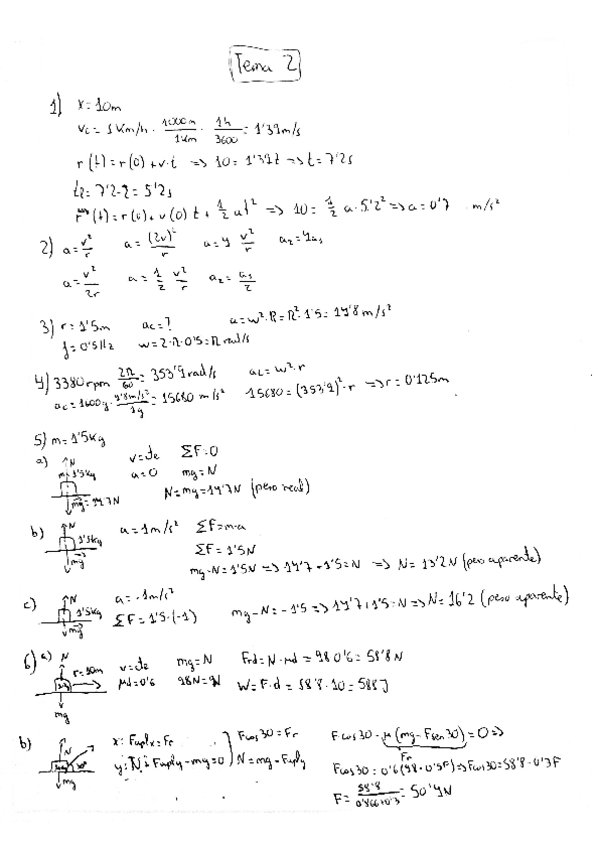 Tema 2
1) x = 10m
v₀ = 5 Km/h · 1000m/1Km · 1h/3600 = 1'39m/s
r(t) = r(0) + v·t => 10 = 1'39t => t = 7'2s
t₂ = 7'2 - 2 = 5'2s
r(t) = r(0) + v(0)t + 1/2 at² => 10 = 1/2 a·5'2² => a = 0'7 m/s²
2) a = v²/r a = (2v)²/r a = 4 v²/r a₂ = 4a₁
a = v²/2r a = 1/2 v²/r a₂ = a₁/2
3) r = 1'5m ac = ? a = w²·R = π²·1'5 = 14'8 m/s²
f = 0'5Hz w = 2·π·0'5 = π rad/s
4) 3380 rpm 2π/60 = 353'9 rad/s ac = w²·r
ac = 1600g · 9'8m/s²/1g = 15680 m/s² 15680 = (353'9)²·r => r = 0'125m
5) m = 1'5Kg
a) N v = cte ΣF = 0
m = 1'5Kg a = 0 mg = N
mg = 14'7N N = mg = 14'7N (peso real)
b) N 1'5Kg a = 1m/s² ΣF = m·a
ΣF = 1'5N
mg mg - N = 1'5N => 14'7 - 1'5 = N => N = 13'2N (peso aparente)
c) N a = -1m/s²
1'5Kg ΣF = 1'5·(-1) mg - N = -1'5 => 14'7 + 1'5 = N => N = 16'2 (peso aparente)
mg
6) a) N r = 10m v = cte mg = N Frd = N·μd = 98·0'6 = 58'8N
μd = 0'6 98N = N W = F·d = 58'8·10 = 588J
mg
b) N x: Faplx = Fr Fcos30 = Fr F cos30 - μ(mg - Fsen30) = 0 =>
30° y: N + Faply - mg = 0 N = mg - Faply Fr
mg Fcos30 = 0'6(98 - 0'5F) => Fcos30 = 58'8 - 0'3F
F = 58'8/0'866+0'3 = 50'4N